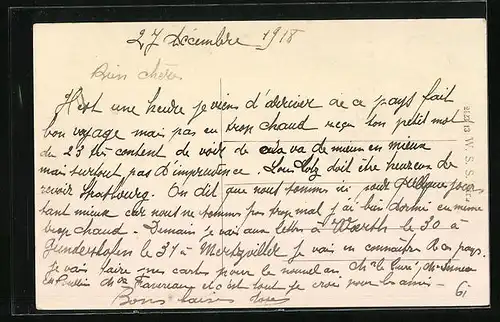 27 Décembre 1918
Bien chère
Il est une heure je viens d'arriver ai ce pays fait
bon voyage mais pas eu trop chaud reçu ton petit mot
du 23 très content de voir de cela va de mieux en mieux
mais surtout pas d'imprudence. doit être heureux de
revoir Strasbourg. On dit que nous sommes ici pour quelques jours
tant mieux car nous ne sommes pas trop mal j'ai bien dormi eu même
trop chaud. Demain je vais aux lettres à Woerth le 30 à
Gundershofen le 31 à Mertzviller je vais en connaître du pays.
Je vais faire mes cartes pour le nouvel an.
et c'est tout je crois pour les amis
Bons baisers
W. S. S. B.